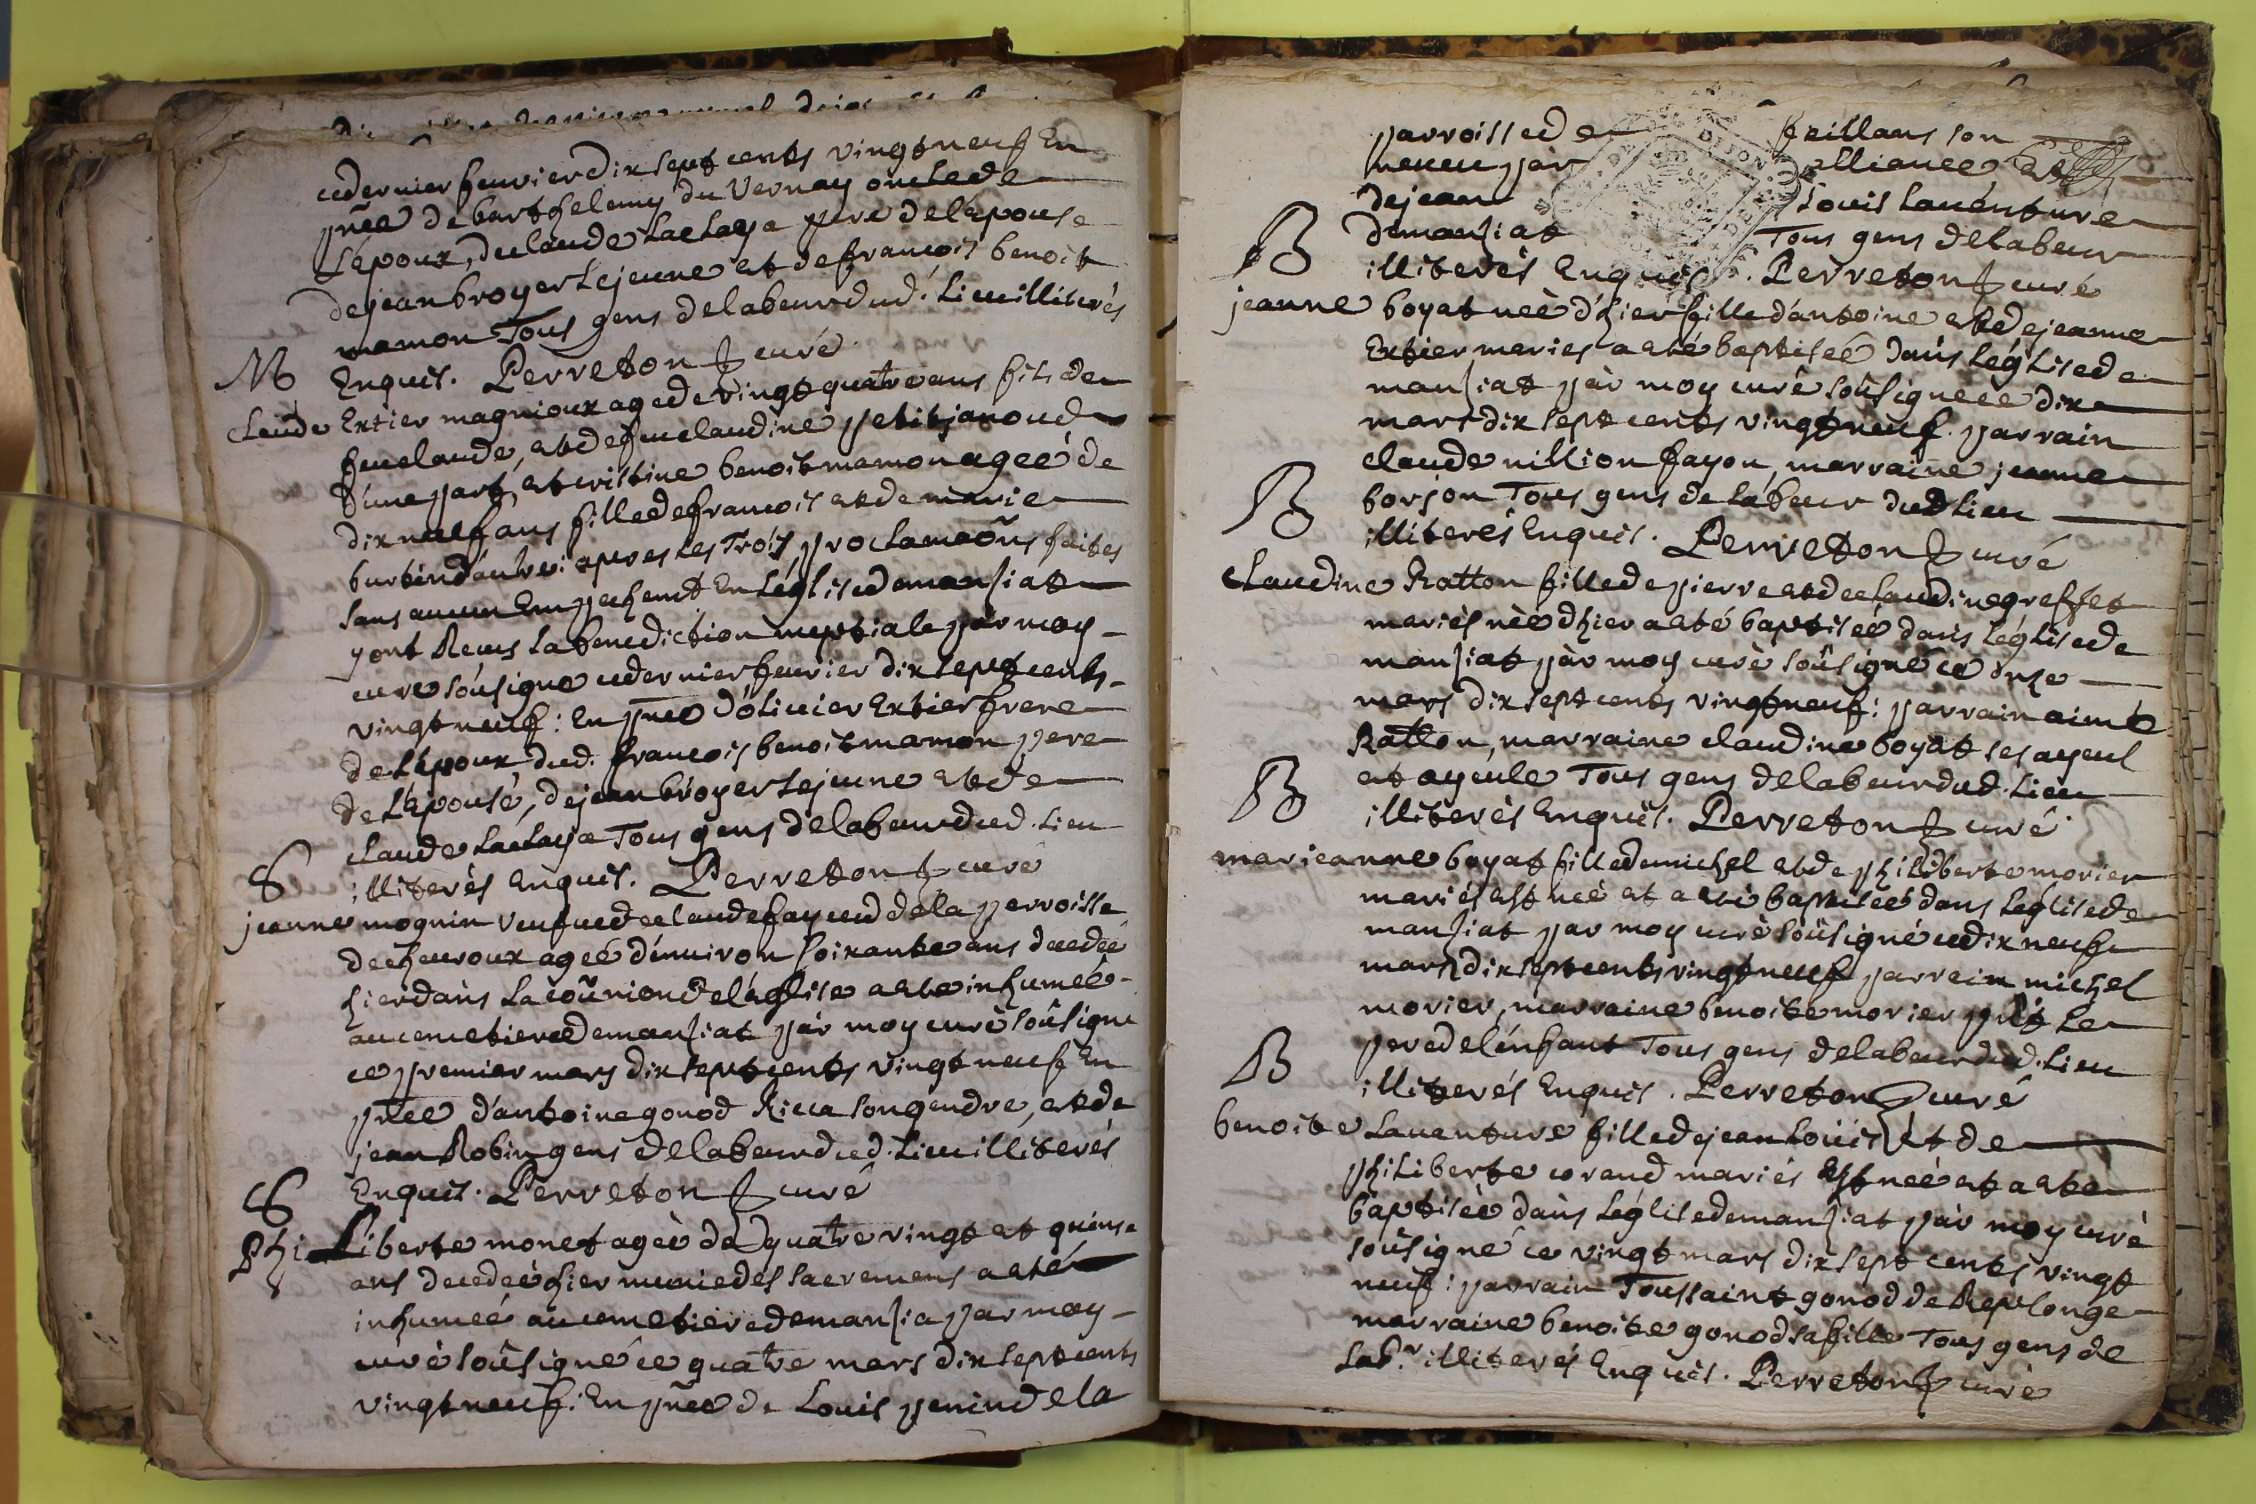 ce dernier feuvrier dix sept cents vingt neuf En
p̃nce de barthelemy du Vernay oncle de
L'époux, de claude Laclaye pere de l'epouse
de jean broyer Le jeune et de francois benoit
mamon Tous gens de labeur dud. Lieu illiterés
M Enquis. Perreton curé
claude Extier magnioux agé de vingt quatre ans fils de
feu claude, et de feu claudine petitjanoud
d'une part, et cristine benoit mamon ageé de
dix neuf ans fille de francois et de marie
burtin d'autre: apres Les Trois proclamaõns faites
sans aucun Empechemt En L'églisede manziat
y ont Receus La benediction nuptiale pàr moy
curé soûsigné ce dernier feuvrier dix sept cents
vingt neuf: En p̃nce d'olivier Extier frere
de L'époux dud. francois benoit mamon pere
de L'épousé, de jean broyer Le jeune et de
claude Laclaye Tous gens de labeur dud. Lieu
S illiterés Enquis. Perreton curé
jeanne mognin veufve de claude fayend de la parroisse
de chevroux ageé d'environ soixante ans decedeé
hier dans La coõmunion de l'église a eté inhumeé
au cemetiere de manziat pàr moy curé soûsigné
ce premier mars dix sept cents vingt neuf En
p̃nce d'antoine gonod Ricca son gendre, et de
jean Robin gens de labeur dud. Lieu illiterés
S Enquis. Perreton curé
Phi Liberte monet ageè de quatre vingt et quinse
ans decedeé hier munie des sacremens a eté
inhumeé au cemetiere de manzia par moy
curè soûsigné ce quatre mars dix sept cents
vingt neuf: En p̃nce de Louis penin de la
parroisse de feillans son
neveu pàr alliance et
de jean Louis Laventure
B de manziat Tous gens de labeur
illiterés Enquis. Perreton curé
jeanne boyat neè d'hier fille d'antoine et de jeanne
Extier mariés a eté baptiseé dans L'église de
manziat pàr moy curé soûsigné ce dix
mars dix sept cents vingt neuf. parrain
claude nillion fayon, marraine jeanne
B borjon Tous gens de labeur dud Lieu
illiterés Enquis. Perreton curé
claudine Ratton fille de pierre et de claudine greffet
mariés neè d'hier a eté baptiseé dans L'église de
manziat pàr moy curè soûsigné ce onze
mars dix sept cents vingt neuf: parrain aimé
Ratton, marraine claudine boyat ses ayeul
B et ayeule Tous gens de labeur dud. Lieu
illiterés Enquis. Perreton curé
marieanne boyat fille de michel et de philiberte morier
mariés est neé et a eté baptiseé dans L'église de
manziat par moy curè soûsigné ce dix neuf
mars dix sept cents vingt neuf parrain michel
morier, marraine benoite morier p̃nt Le
B pere de l'enfant Tous gens de labeur dud. Lieu
illiterés Enquis. Perreton curé
benoite Laventure fille de jean Louis et de
philiberte corand mariés Est neé et a eté
baptiseé dans L'église de manziat pàr moy curè
soûsigné ce vingt mars dix sept cents vingt
neuf: parrain Toussaint gonod de Replonge
marraine benoite gonod sa fille Tous gens de
Labr illiterés Enquis. Perreton curè